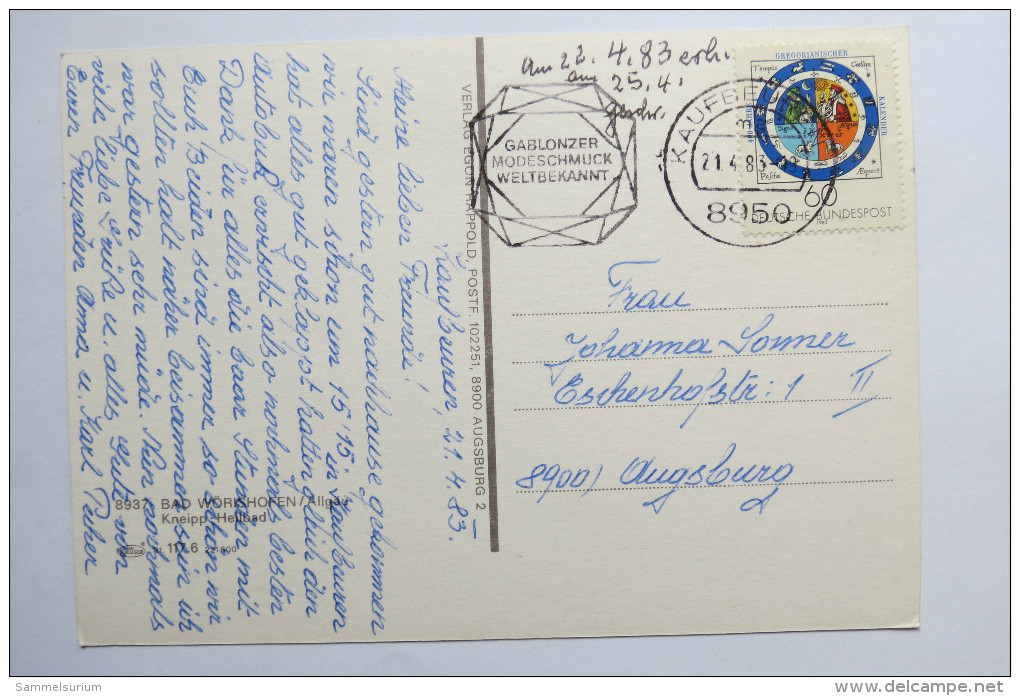 Kaufbeuren, 21.4.83.
Meine lieben Freunde!
Sind gestern gut nachhause gekommen
wir waren schon um 15'15 in Kaufbeuren
hat alles gut geklappt hatten doch den
Autobuß erwischt also nochmals besten
Dank für alles die paar Stunden mit
Euch Beiden sind immer so schön wir
sollten halt näher beisammen sein ich
war gestern sehr müde. Nun nochmals
viele liebe Grüße u. alles Gute von
Euren Freunden Anna u. Karl
8937 BAD WÖRISHOFEN / Allgäu
Kneipp-Heilbad
117.6
VERLAG EGON RAPPOLD, POSTF. 102251, 8900 AUGSBURG 2
Am 22. 4.83 erh.
am 25.4.
geschr.
GABLONZER
MODESCHMUCK
WELTBEKANNT
KAUFBE
21.4.83
8950
GREGORIANISCHER
KALENDER
60
DEUTSCHE BUNDESPOST
1982
Frau
Johanna Sonner
Eschenhofstr: 1 II
8900) Augsburg
Sammelsurium
www.delcampe.net